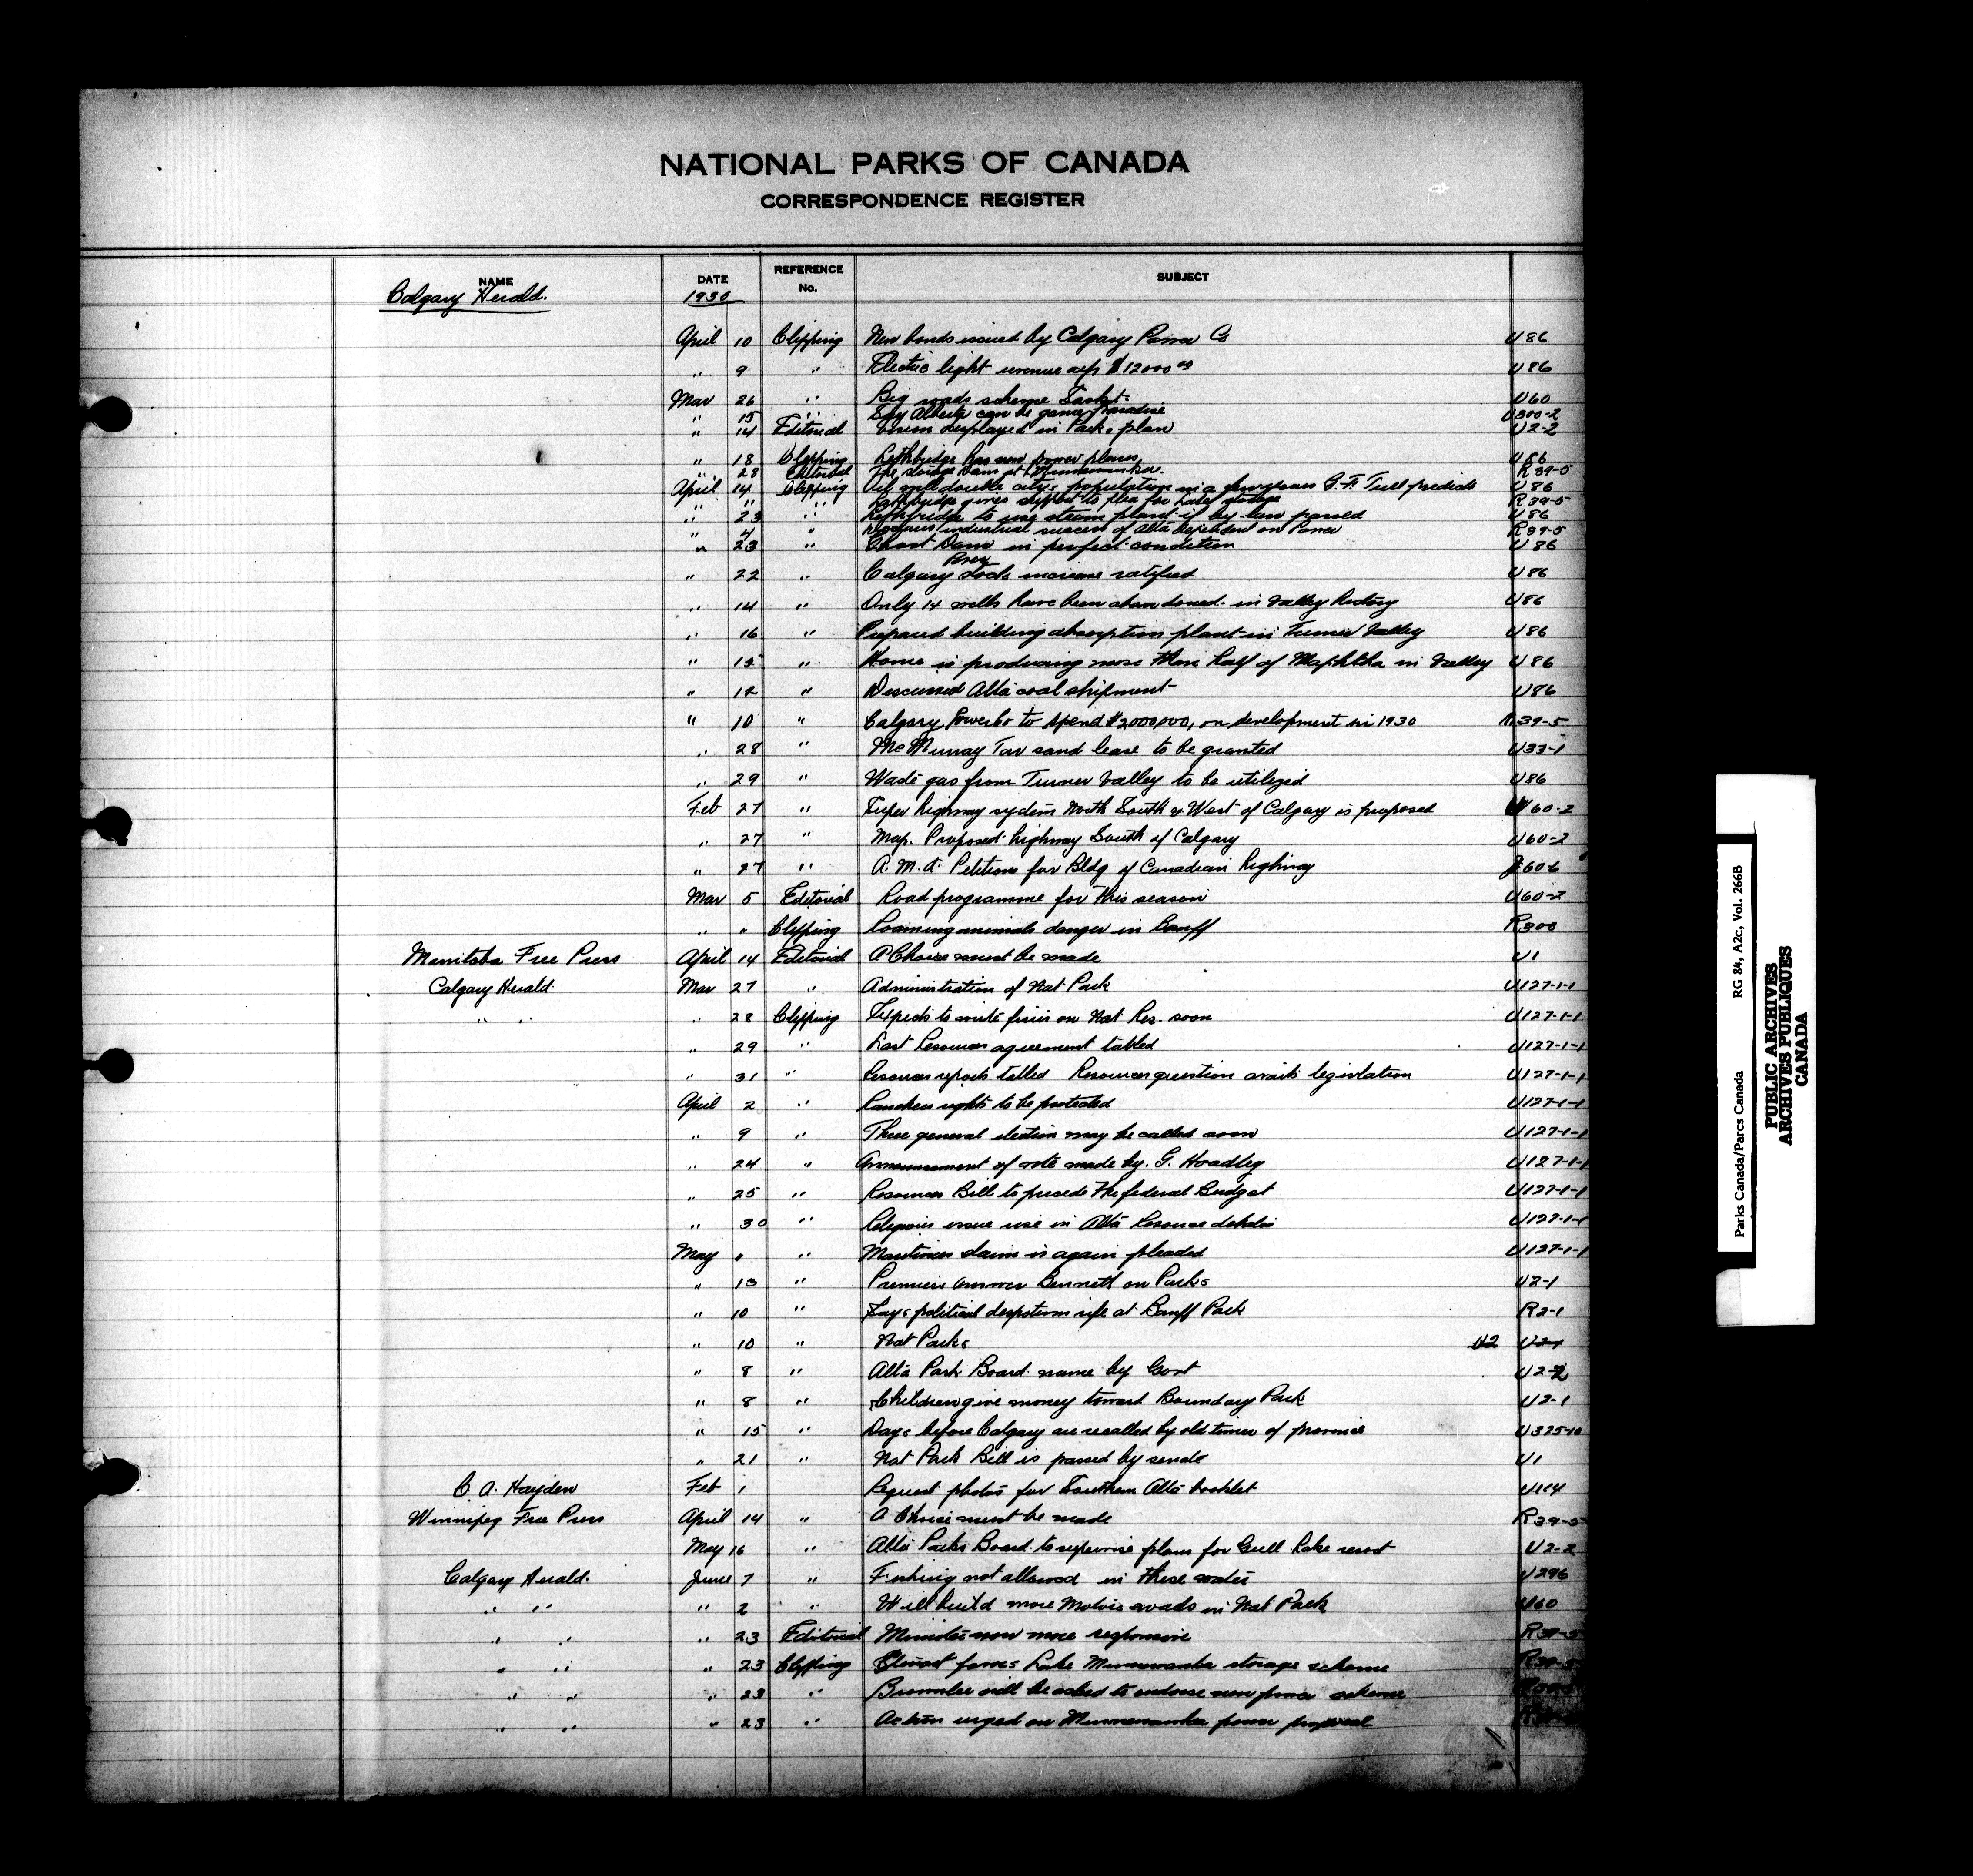 NATIONAL PARKS OF CANADA
CORRESPONDENCE REGISTER
NAME DATE REFERENCE No. SUBJECT
Calgary Herald. 1930
April 10 Clipping New bonds issued by Calgary Power Co U86
" 9 " Electric light revenue up $12000 00 U86
Mar 26 " Big roads scheme Sask U60
" 15 " Say Alberta can be game paradise U300-2
" 14 Editorial Vision displayed in Parks plan U2-2
" 18 Clipping Lethbridge has new power plans U86
" 28 Editorial The storage Dam at Minnewanka. R39-5
April 14 Clipping Oil will double city's population in a few years G.F. Tull predicts U86
" " " Lethbridge gives support to plea for Lake storage R39-5
" 23 " Lethbridge to use steam plant if by-law passed U86
" 4 " industrial success of Alta dependent on Power R39-5
" 23 " Ghost Dam in perfect condition U86
" 22 " Calgary Power Stock increase ratified U86
" 14 " Only 14 wells have been abandoned in valley history U86
" 16 " Prepared building absorption plant in Turner Valley U86
" 15 " Home is producing more than half of Naphtha in Valley U86
" 12 " Discussed Alta coal shipment U86
" 10 " Calgary Power Co to spend $2000,000, on development in 1930 R39-5
" 28 " McMurray Tar sand lease to be granted U33-1
" 29 " Waste gas from Turner Valley to be utilized U86
Feb 27 " Super highway system North South & West of Calgary is proposed U60-2
" 27 " Map. Proposed highway South of Calgary U60-2
" 27 " A.M.A. Petitions for Bldg of Canadian highway 60-6
Mar 5 Editorial Road programme for this season U60-2
" " Clipping Roaming animals danger in Banff R300
Manitoba Free Press April 14 Editorial A Choice must be made U1
Calgary Herald Mar 27 " Administration of Nat Park U127-1-1
" " " 28 Clipping Expects to write finis on Nat Res. soon U127-1-1
" 29 " Last Resources agreement tabled U127-1-1
" 31 " Resources reports tabled Resources question awaits legislation U127-1-1
April 2 " Ranchers rights to be protected U127-1-1
" 9 " Three general election may be called soon U127-1-1
" 24 " Announcement of vote made by. G. Hoadley U127-1-1
" 25 " Resources Bill to precede the federal Budget U127-1-1
" 30 " Religious issue rise in Alta Resource debate U127-1-1
May " " Maritimes claim is again pleaded U127-1-1
" 13 " Premiers answer Bennett on Parks U2-1
" 10 " Says political despotism rife at Banff Park R2-1
" 10 " Nat Parks U2 U2-1
" 8 " Alta Park Board name by Govt U2-2
" 8 " Children give money toward Boundary Park U2-1
" 15 " Days before Calgary are recalled by old timer of province U325-10
" 21 " Nat Park Bill is passed by senate U1
C. A. Hayden Feb 1 Request photos for Southern Alta booklet U114
Winnipeg Free Press April 14 " A Choice must be made R39-5
May 16 " Alta Parks Board to supervise plans for Gull Lake resort U2-2
Calgary Herald. June 7 " Fishing not allowed in these waters U296
" " " 2 " Will build more Motor roads in Nat Park U60
" " " 23 Editorial Minister now more responsive R39-5
" " " 23 Clipping Stewart favors Lake Minnewanka storage scheme R39-5
" " " 23 " Brownlee will be asked to endorse new power scheme
" " " 23 " Action urged on Minnewanka power proposal
Parks Canada/Parcs Canada RG 84, A2c, Vol. 266B
PUBLIC ARCHIVES
ARCHIVES PUBLIQUES
CANADA